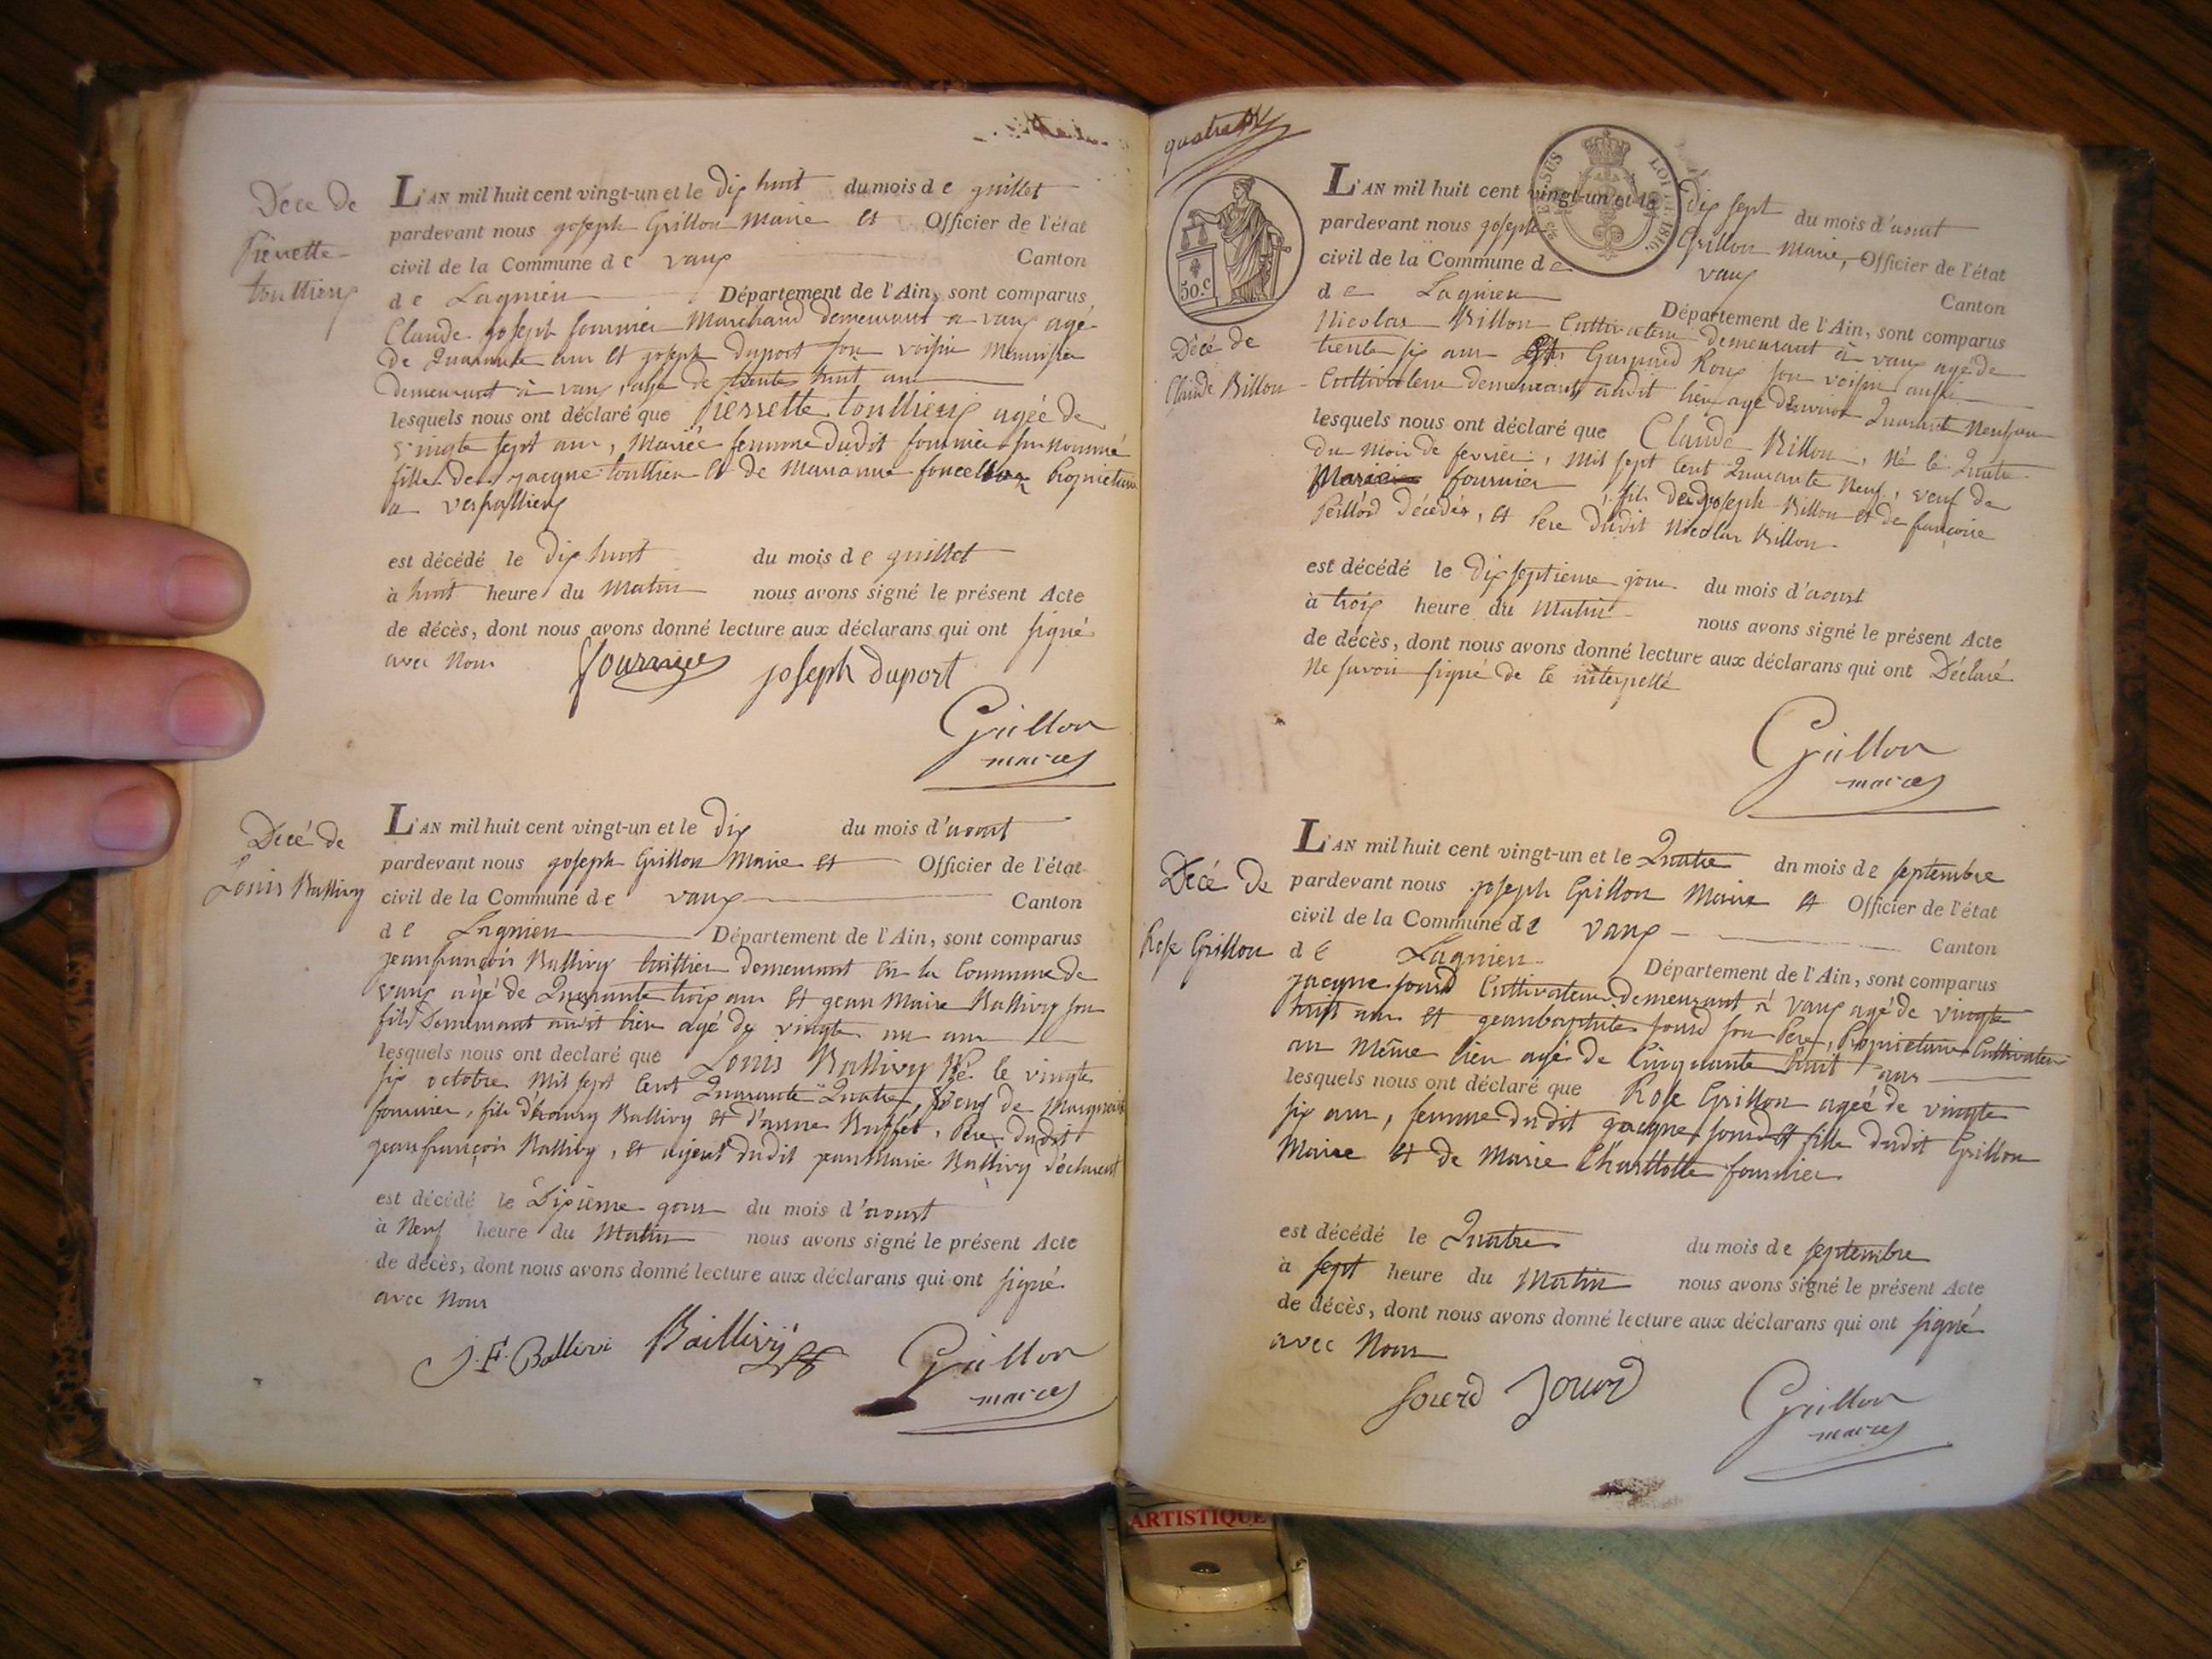 Déce de
Pierrette
toullieux
L'AN mil huit cent vingt-un et le dix huit du mois de guillet
pardevant nous goseph Grillon Maire et Officier de l'état
civil de la Commune de vaux Canton
de Lagnieu Département de l'Ain, sont comparus
Claude goseph fournier Marchand demeurant a vaux agé
de Quarante ans et goseph duport son voisin Menuisier
demeurant à vaux, agé de trente huit ans
lesquels nous ont déclaré que Pierrette toullieux agée de
vingte sept ans, Mariée femme dudit fournier surnommé
fille de jacque toullieu et de Marianne Proprietaire
a
est décédé le dix huit du mois de guillet
à huit heure du Matin nous avons signé le présent Acte
de décès, dont nous avons donné lecture aux déclarans qui ont signé
avec Nous
fournier joseph duport
Grillon
maire
Décé de
Louis Ballivy
L'AN mil huit cent vingt-un et le dix du mois d'aoust
pardevant nous goseph Grillon Maire et Officier de l'état
civil de la Commune de vaux Canton
de Lagnieu Département de l'Ain, sont comparus
jeanfrançois Ballivy demeurant en la Commune de
vaux agé de Quarante trois ans et gean Marie Ballivy son
fils demeurant audit lieu agé de vingte un ans
lesquels nous ont declaré que Louis Ballivy Né le vingte
six octobre Mil sept Cent Quarante Quatre, veuf de
fournier, fils Ballivy et d'anne Buffet, Pere dudit
jeanfrançois Ballivy, et ayeul dudit jeanMarie Ballivy déclarent
est décédé le Dixieme gour du mois d'aoust
à Neuf heure du Matin nous avons signé le présent Acte
de décès, dont nous avons donné lecture aux déclarans qui ont signé
avec Nous
J. F. Ballivi Baillivy
Grillon
maire
quatre
SUS LOI DE 1816.
50.c
Décé de
Claude Billon
L'AN mil huit cent vingt-un et le dix sept du mois d'aoust
pardevant nous goseph Grillon Maire, Officier de l'état
civil de la Commune de vaux Canton
de Lagnieu Département de l'Ain, sont comparus
Nicolas Billon Cultivateur demeurant à vaux agé de
trente six ans et Gaspard Roux son voisin aussi
Cultivateur demeurant audit lieu agé d'environ Quarante Neuf ans
lesquels nous ont déclaré que Claude Billon, Né le Quatre
du Mois de fevrier, Mil sept Cent Quarante Neuf, veuf de
Marie fournier, fils de goseph Billon et de françoise
Peillod décédés, et Pere dudit Nicolas Billon
est décédé le dix septieme jour du mois d'aoust
à trois heure du Matin nous avons signé le présent Acte
de décès, dont nous avons donné lecture aux déclarans qui ont Déclaré
Ne savoir signé de ce interpellé
Grillon
maire
Décé de
Rose Grillon
L'AN mil huit cent vingt-un et le Quatre dn mois de septembre
pardevant nous joseph Grillon Maire et Officier de l'état
civil de la Commune de vaux Canton
de Lagnieu Département de l'Ain, sont comparus
jacque jourd Cultivateur demeurant à vaux agé de vingte
huit ans et geanbaptiste jourd son Pere, Proprietaire Cultivateur
au même lieu agé de Cinquante huit ans
lesquels nous ont déclaré que Rose Grillon agée de vingte
six ans, femme dudit gacque jourd et fille dudit Grillon
Maire et de Marie Charllotte fournier
est décédé le Quatre du mois de septembre
à sept heure du Matin nous avons signé le présent Acte
de décès, dont nous avons donné lecture aux déclarans qui ont signé
avec Nous
Jourd Jourd
Grillon
maire
ARTISTIQUE